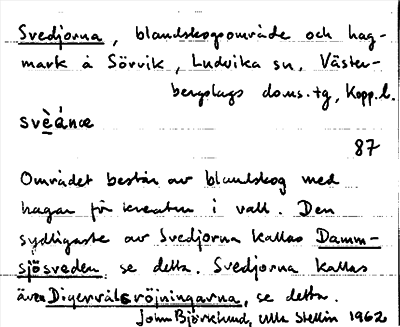 Svedjorna, blandskogsområde och hag-
mark å Sörvik, Ludvika sn, Väster-
bergslags doms.tg, Kopp.l.
svèánæ
87
Området består av blandskog med
hagar för kreatur i vall. Den
sydligaste av Svedjorna kallas Damm-
sjösveden, se detta. Svedjorna kallas
även Digervålsröjningarna, se detta.
John Björklund, Ulla Stellin 1962